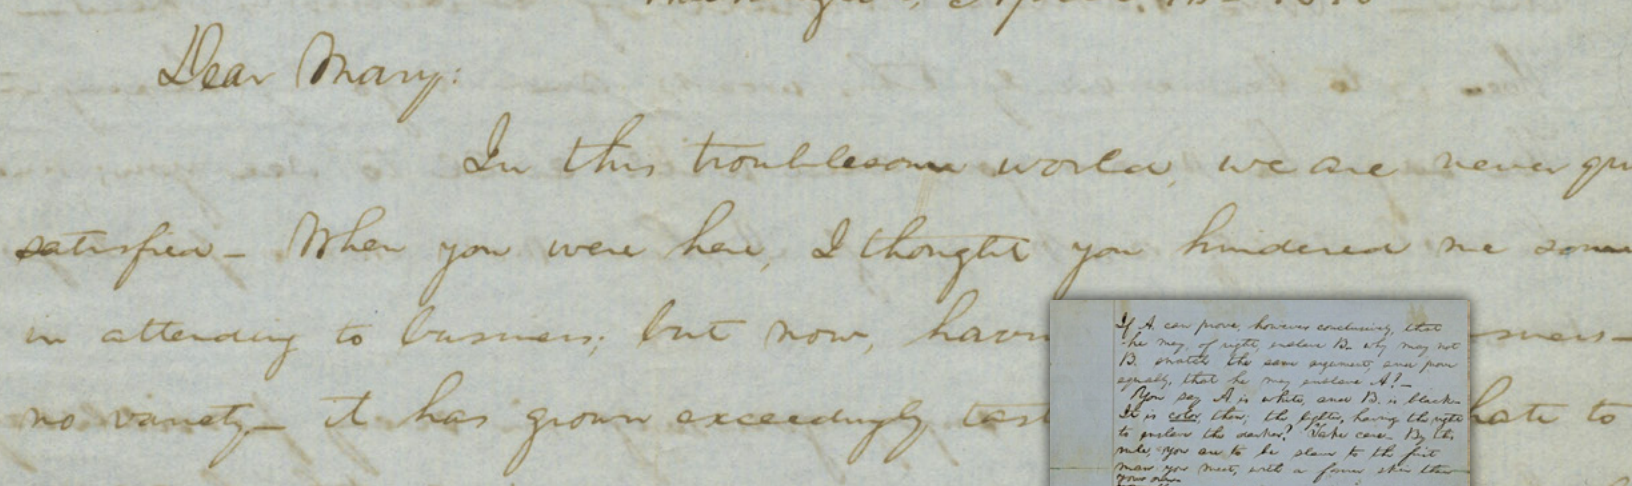 Dear Mary:
In this troublesome world, we are never
satisfied – When you were here, I thought you hindered me some
in attending to business; but now,
no variety – it has grown exceedingly
hate to
If A. can prove, however conclusively, that
he may, of right, enslave B. why may not
B. snatch the same argument, and prove
equally, that he may enslave A?–
You say A is white, and B. is black–
It is color, then; the lighter, having the right
to enslave the darker? Take care– By this
rule, you are to be slave to the first
man you meet, with a fairer skin than
your own